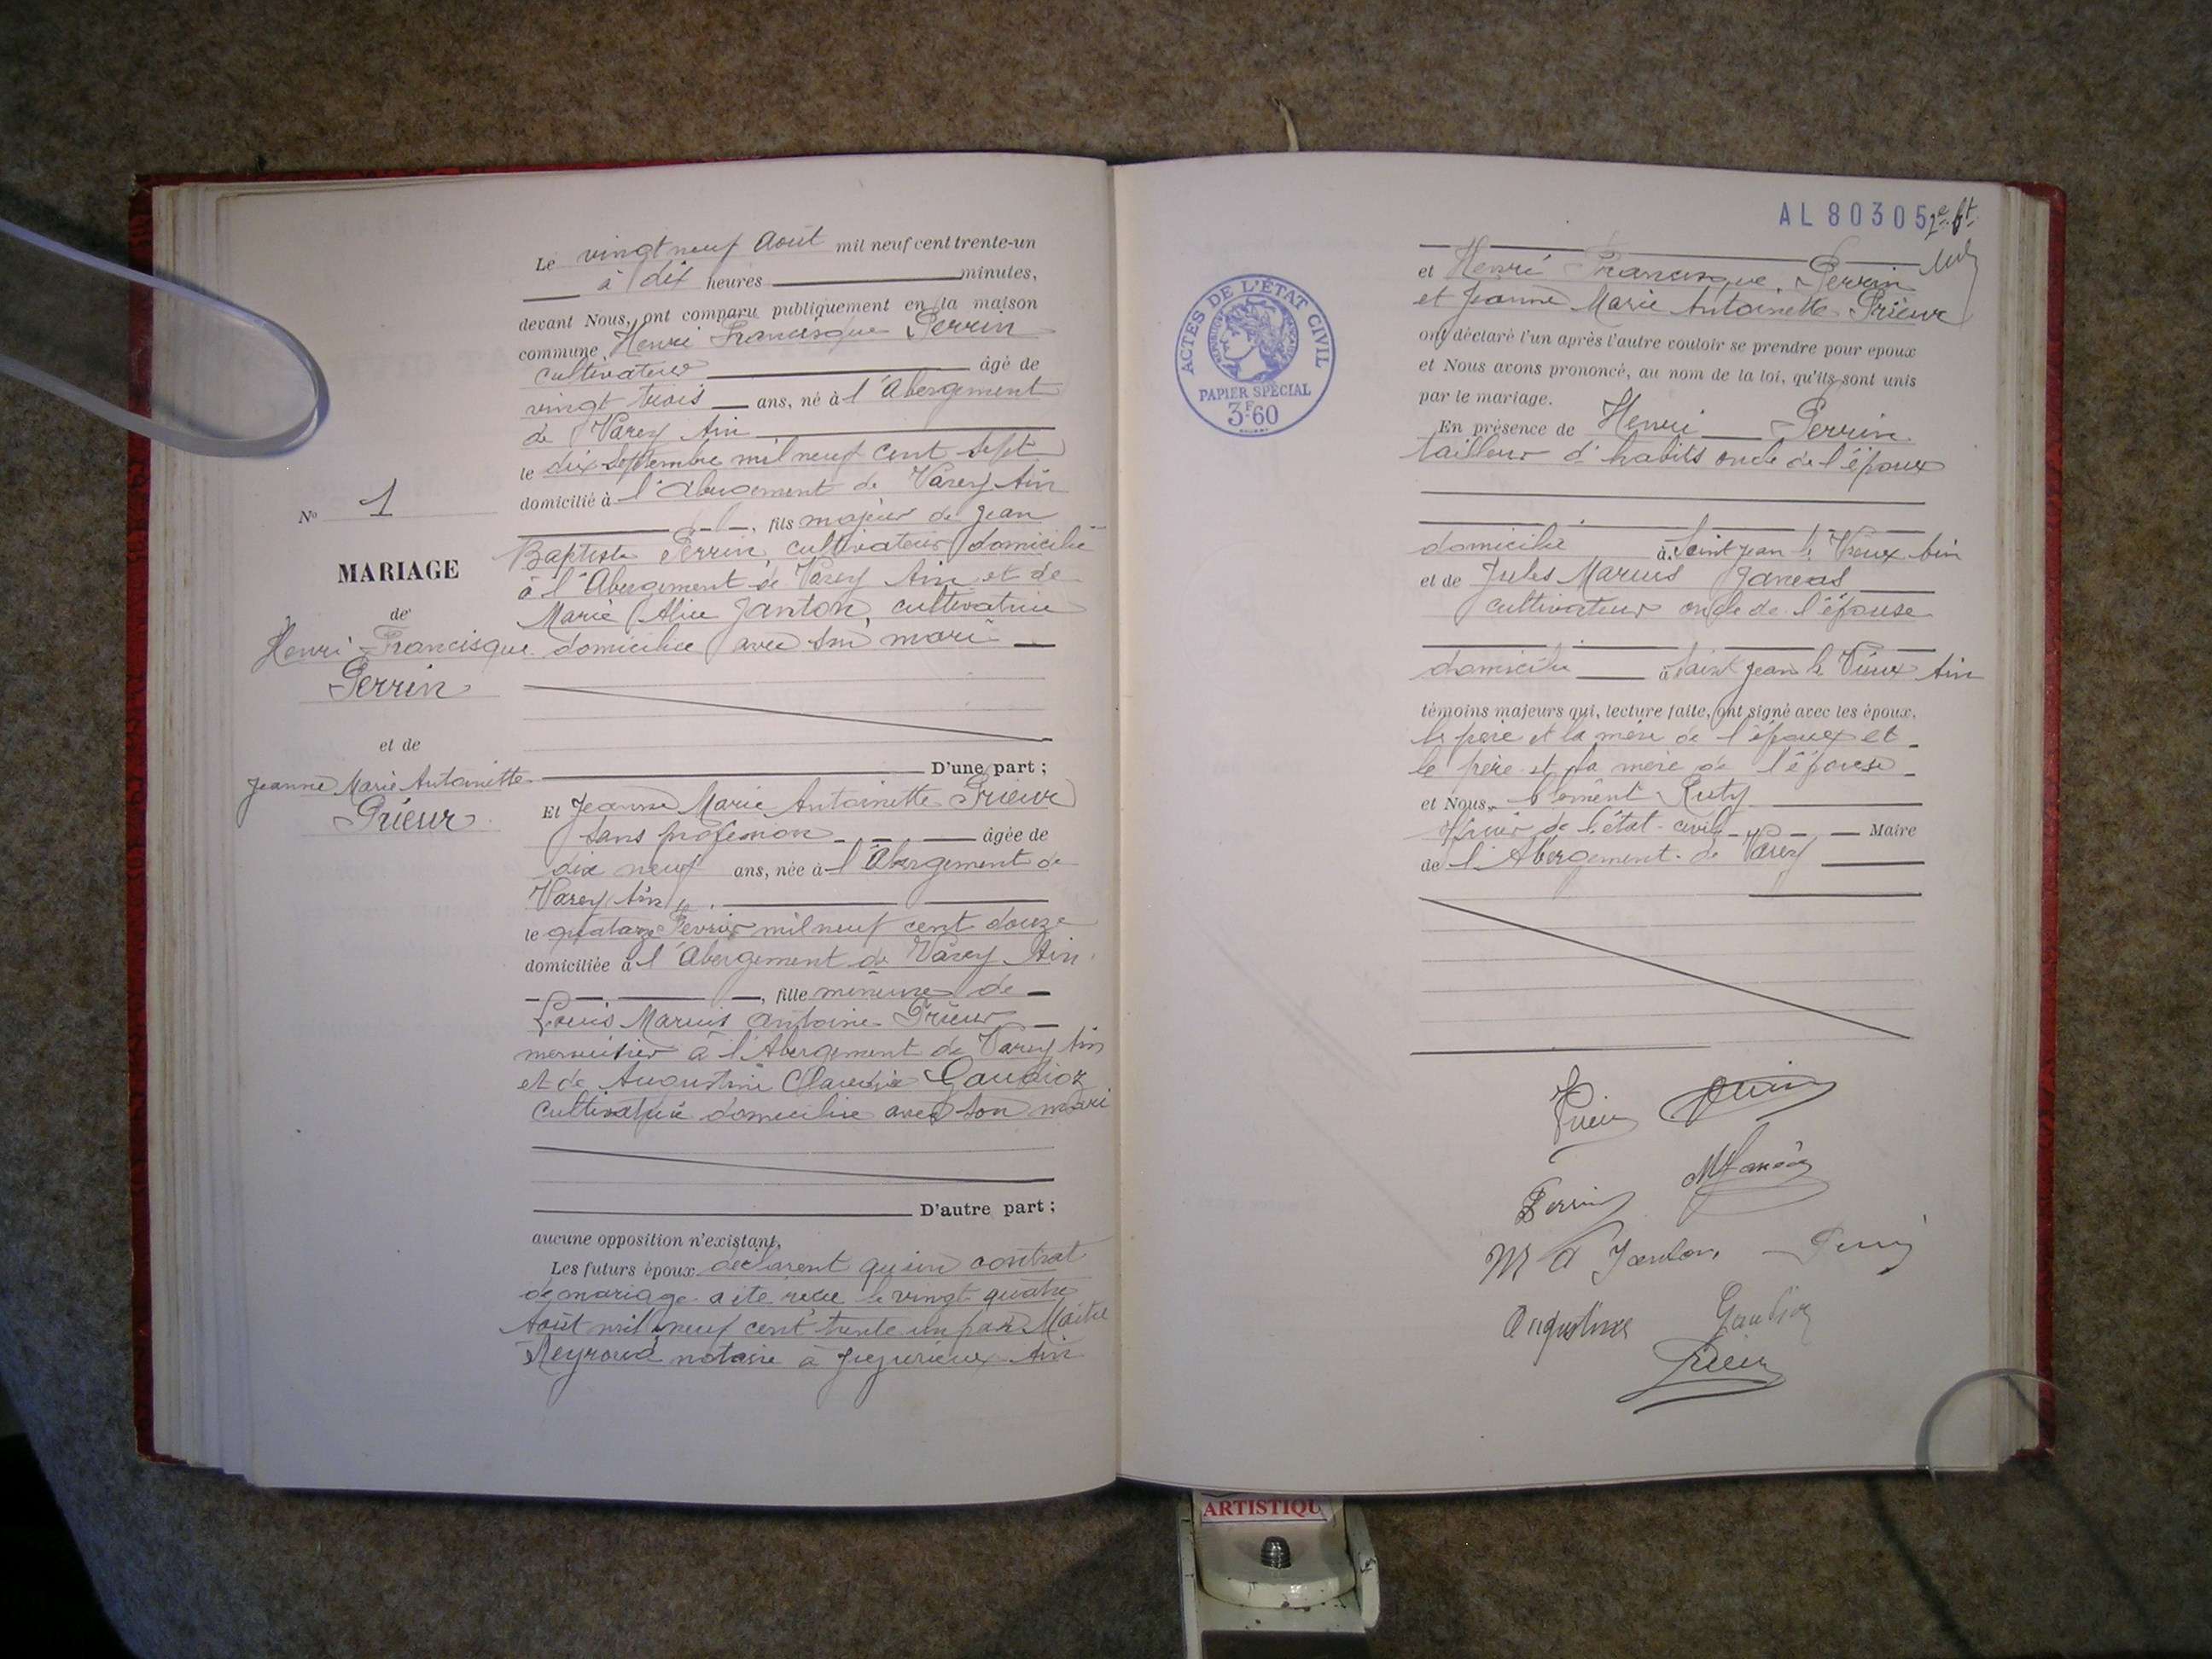 Le vingt neuf Août mil neuf cent trente-un
à dix heures minutes,
devant Nous, ont comparu publiquement en la maison
commune Henri Francisque Perrin
cultivateur âgé de
vingt trois ans, né à l'Abergement
de Varey Ain
le dix Septembre mil neuf cent sept
domicilié à l'Abergement de Varey Ain
, fils majeur de Jean
Baptiste Perrin, cultivateur domicilié
à l'Abergement de Varey Ain et de
Marie Alice Janton, cultivatrice
domiciliée avec son mari
D'une part ;
Et Jeanne Marie Antoinette Prieur
sans profession âgée de
dix neuf ans, née à l'Abergement de
Varey Ain
le quatorze Février mil neuf cent douze
domiciliée à l'Abergement de Varey Ain
, fille mineure de
Louis Marius Antoine Prieur
menuisier à l'Abergement de Varey Ain
et de Augustine Claudia Gaudioz
cultivatrice domiciliée avec son mari
D'autre part ;
aucune opposition n'existant,
Les futurs époux déclarent qu'un contrat
de mariage a été reçu le vingt quatre
Août mil neuf cent trente un par Maître
Reyroud notaire à Jujurieux Ain
No 1
MARIAGE
de
Henri Francisque
Perrin
et de
Jeanne Marie Antoinette
Prieur
AL 80305
ACTES DE L'ÉTAT CIVIL
RÉPUBLIQUE FRANÇAISE
PAPIER SPÉCIAL
3F60
et Henri Francisque Perrin
et Jeanne Marie Antoinette Prieur
ont déclaré l'un après l'autre vouloir se prendre pour époux
et Nous avons prononcé, au nom de la loi, qu'ils sont unis
par le mariage.
En présence de Henri Perrin
tailleur d'habits oncle de l'époux
domicilié à Saint Jean le Vieux Ain
et de Jules Marius Janéas
cultivateur oncle de l'épouse
domicilié à Saint Jean le Vieux Ain
témoins majeurs qui, lecture faite, ont signé avec les époux,
le père et la mère de l'époux et
le père et la mère de l'épouse
et Nous, Clément Ruty
officier de l'état-civil Maire
de l'Abergement de Varey
Prieur Perrin
Perrin
M A Janton Perrin
Augustine Gaudioz
Prieur
ARTISTIQU